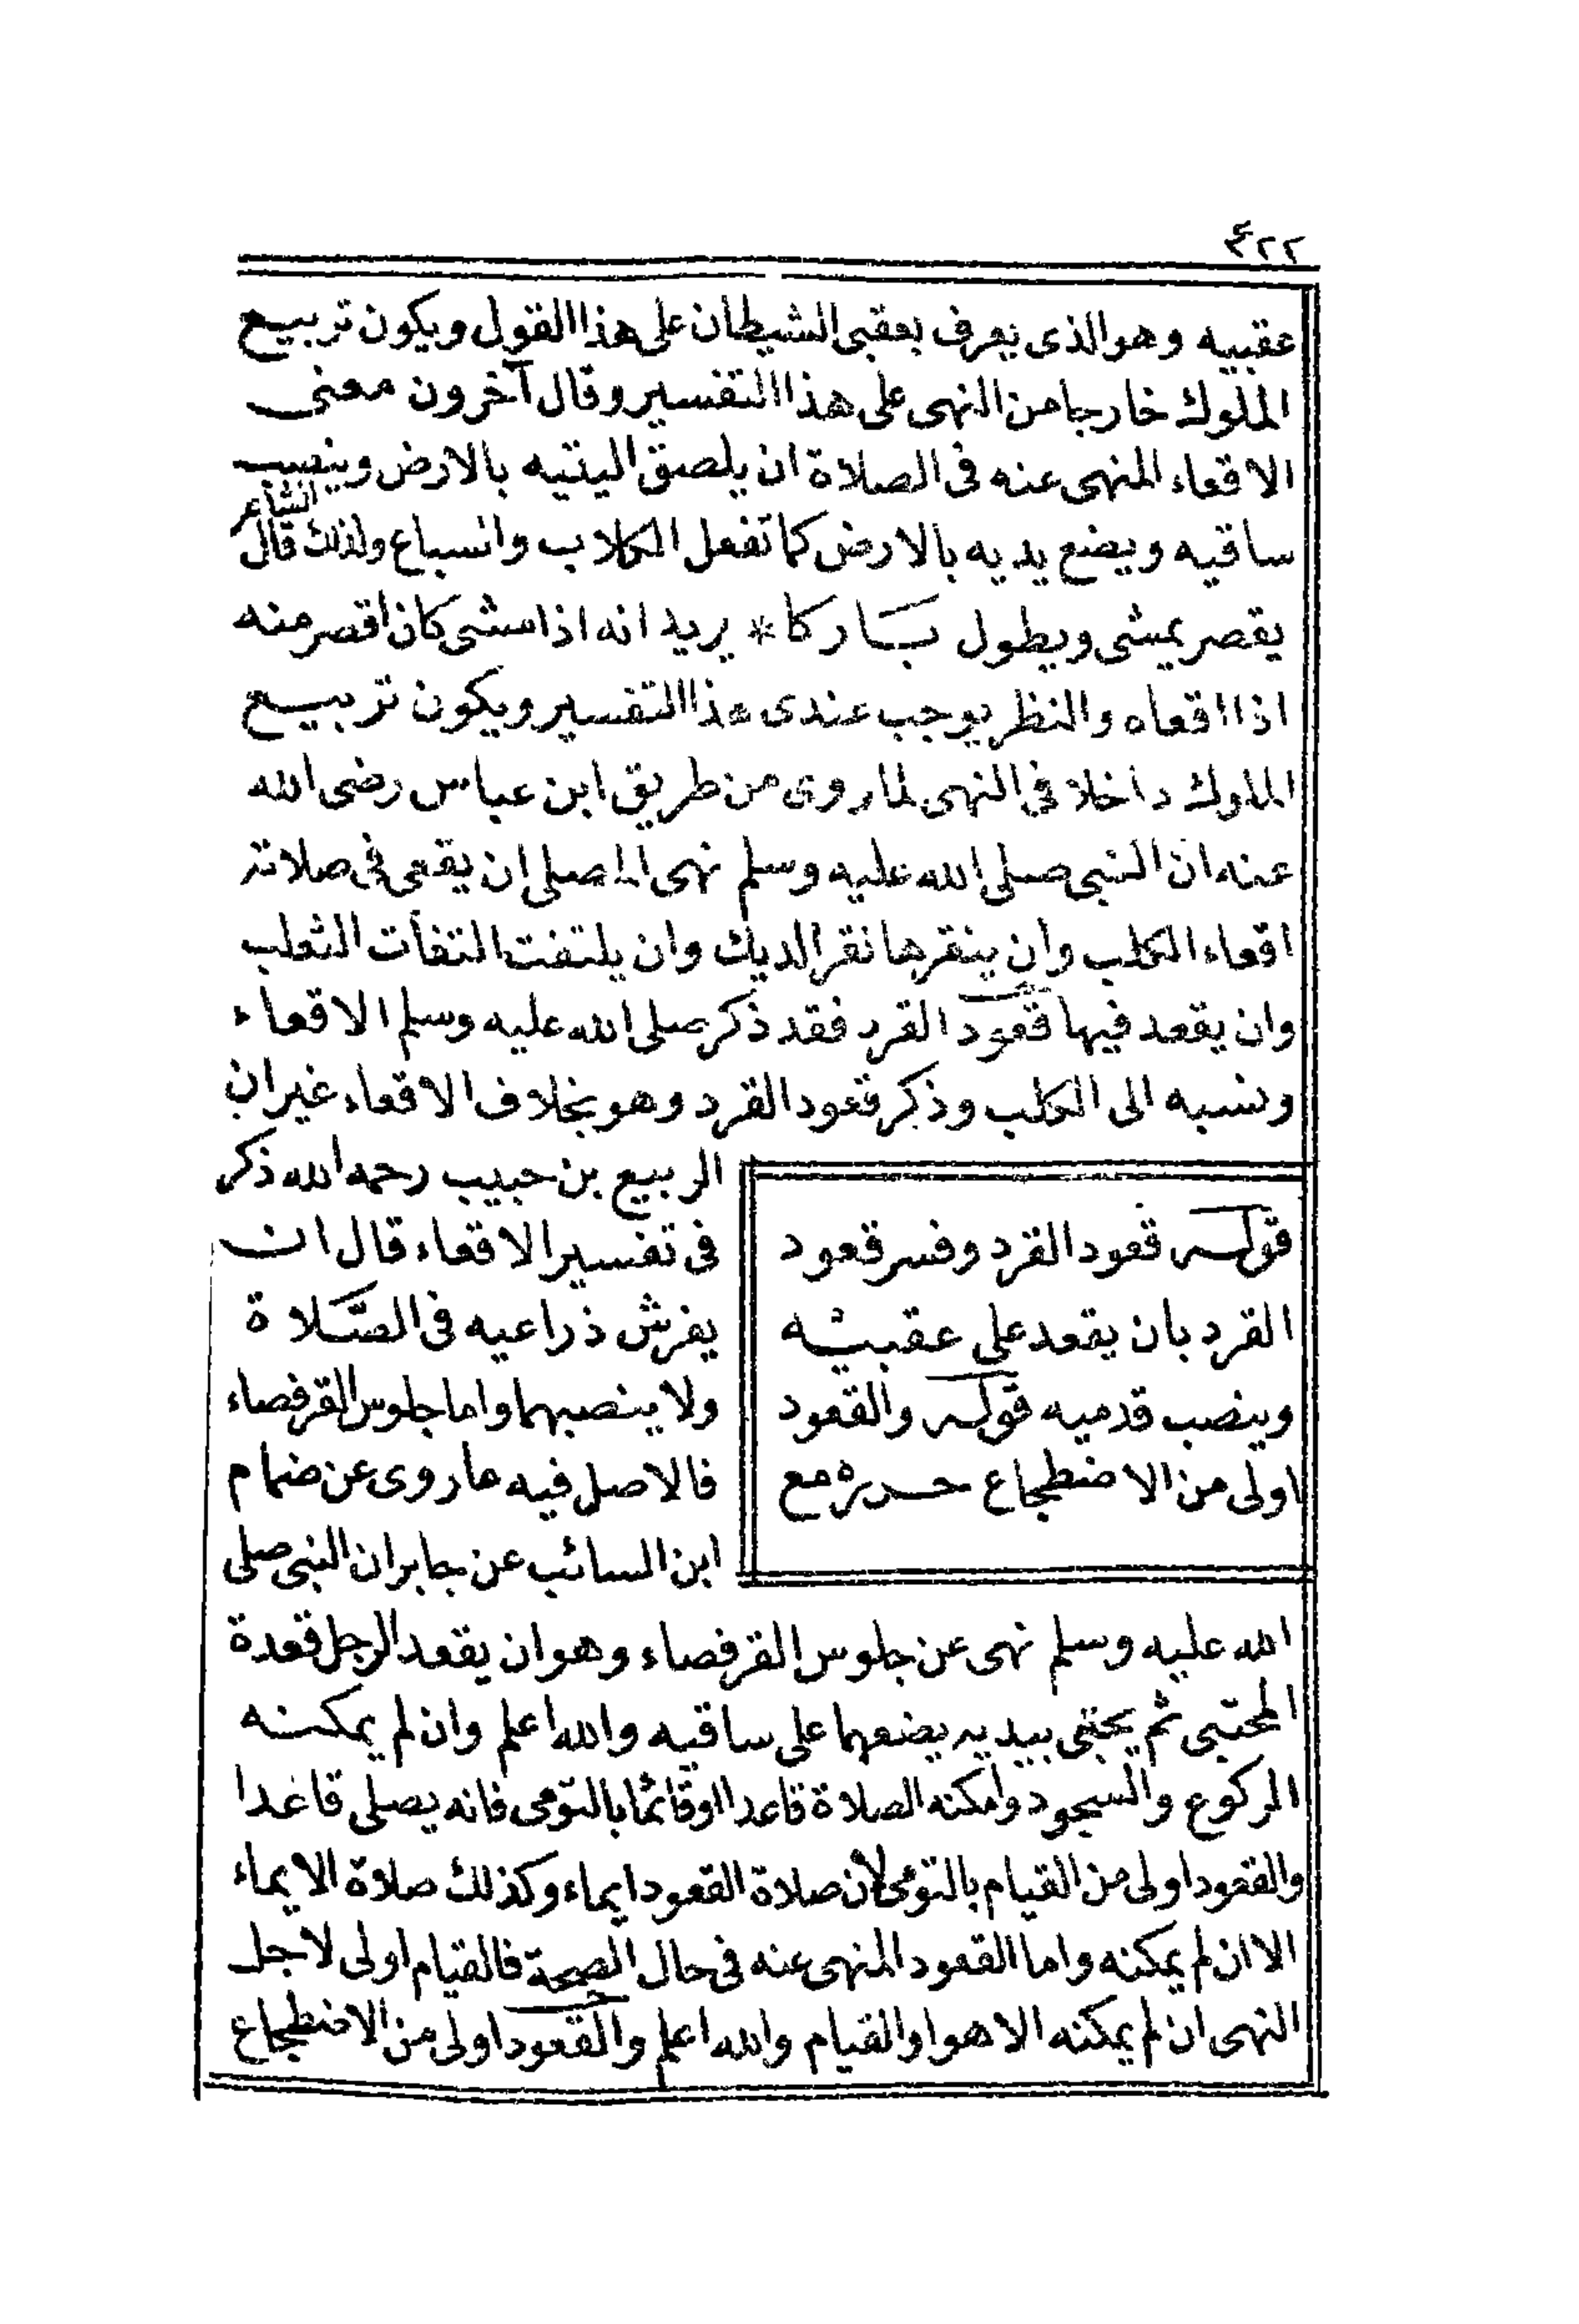 ٤٢٢
عقبيه وهوالذى يعرف بعقبى الشيطان على هذا القول ويكون تربيع
الملوك خارجا من النهى على هذا التفسير وقال آخرون معنى
الاقعاء المنهى عنه فى الصلاة ان يلصق اليتيه بالارض وينصب
ساقيه ويضع يديه بالارض كما تفعل الكلاب والسباع ولذلك قال الشاعر
يقصر يمشى ويطول باركا * يريد انه اذا مشى كان اقصر منه
اذا اقعاه والنظر يوجب عندى هذا التفسير ويكون تربيع
الملوك داخلا فى النهى لما روى من طريق ابن عباس رضى الله
عنه ان النبى صلى الله عليه وسلم نهى المصلى ان يقعى فى صلاته
اقعاء الكلب وان ينقرها نقر الديك وان يلتفت التفات الثعلب
وان يقعد فيها قعود القرد فقد ذكر صلى الله عليه وسلم الاقعاء
ونسبه الى الكلب وذكر قعود القرد وهو بخلاف الاقعاء غير ان
الربيع بن حبيب رحمه الله ذكر
فى تفسير الاقعاء قال ان
يفرش ذراعيه فى الصَّلاة
ولا ينصبهما واما جلوس القرفصاء
فالاصل فيه ما روى عن ضمام
ابن السائب عن جابر ان النبى صلى
الله عليه وسلم نهى عن جلوس القرفصاء وهو ان يقعد الرجل قعدة
المحتبى ثم يحتبى بيديه يضعهما على ساقيه والله اعلم وان لم يمكنه
الركوع والسجود وامكنه الصلاة قاعدا اوقائما بالتومى فانه يصلى قاعدا
والقعود اولى من القيام بالتومى لأن صلاة القعود ايماء وكذلك صلاة الايماء
الا ان لم يمكنه واما القعود المنهى عنه فى حال الصحة فالقيام اولى لاجل
النهى ان لم يمكنه الا هو او القيام والله اعلم والقعود اولى من الاضطجاع
قوله قعود القرد وفسر قعود
القرد بان يقعد على عقبيه
وينصب قدميه قوله والقعود
اولى من الاضطجاع حرره مع